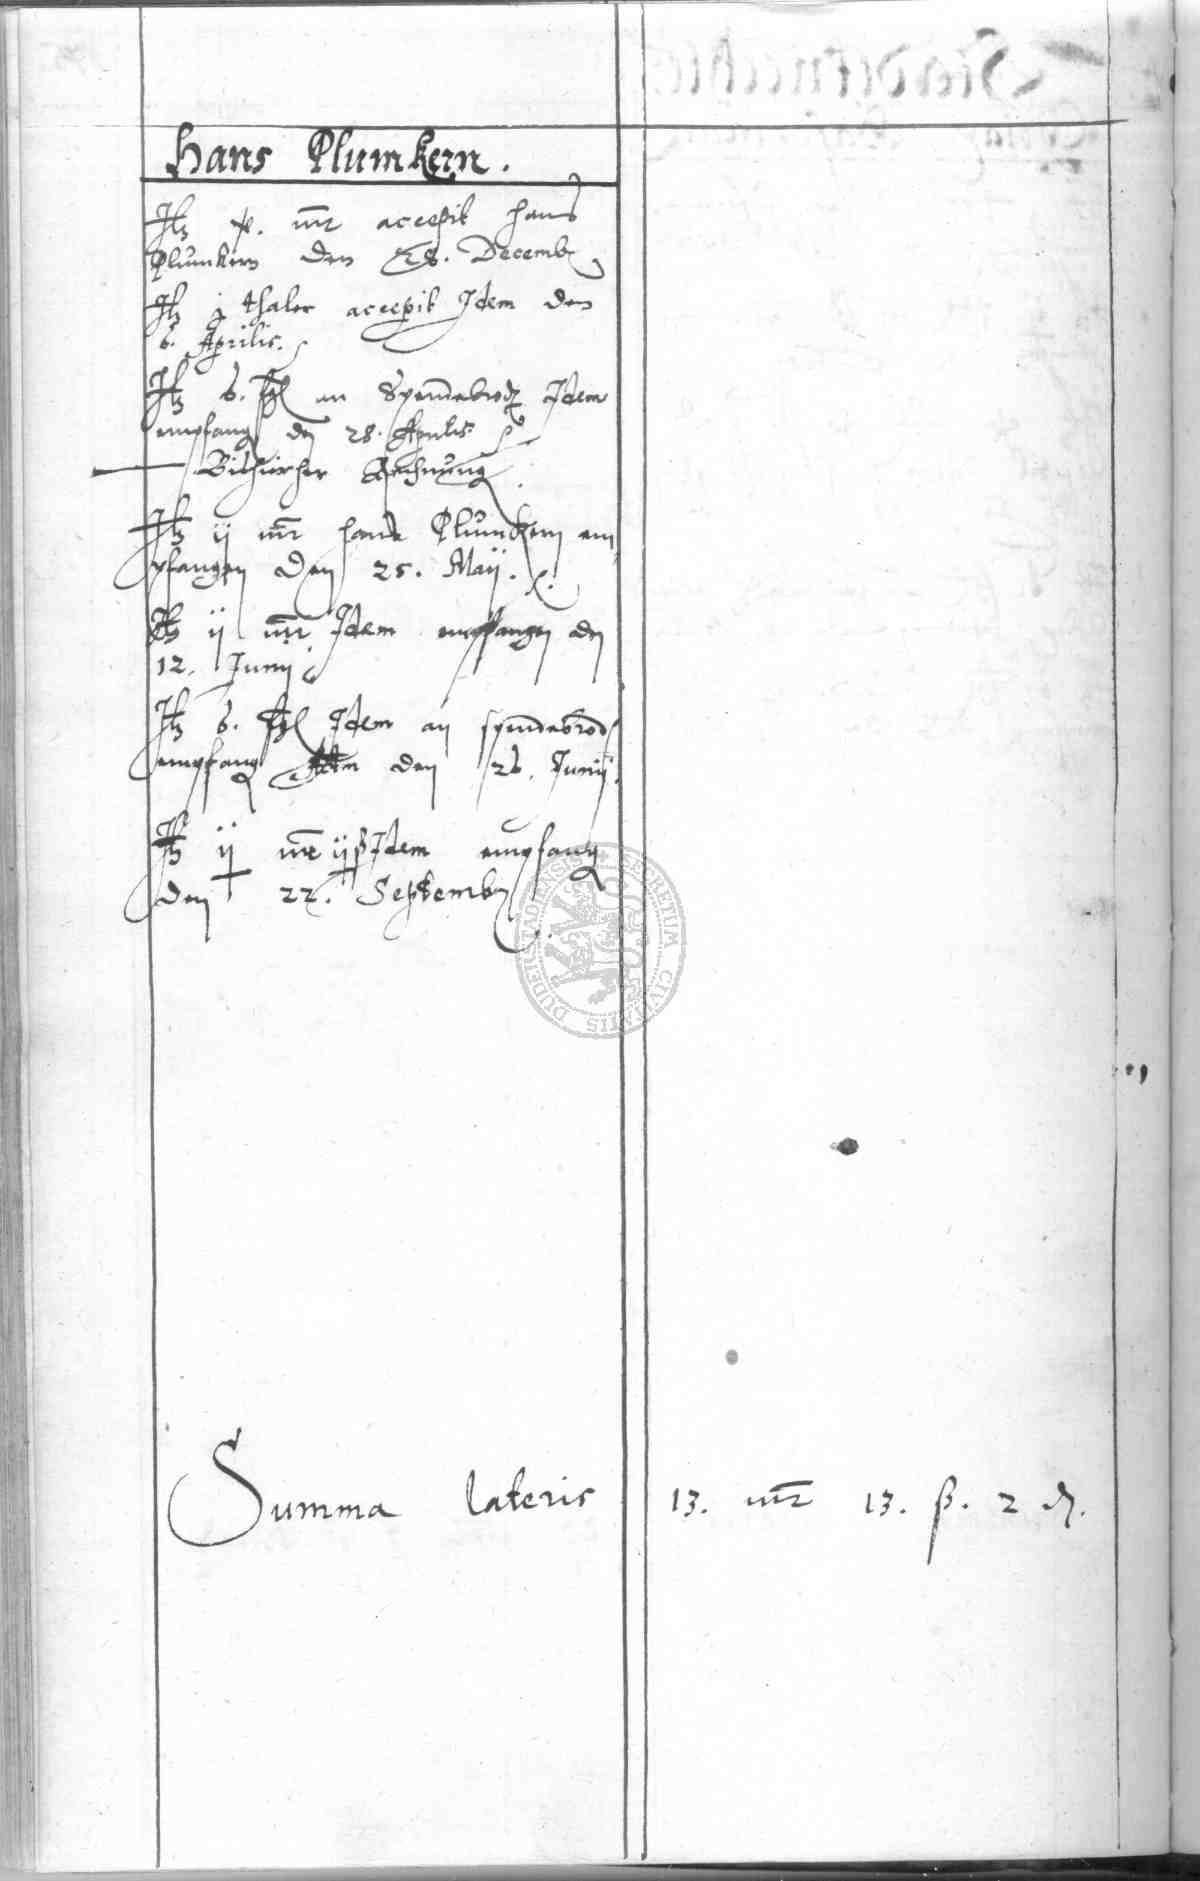 Hans Plumkern.
Itz mr accepit Hans
Plumkern den 28. Decemb
Itz j thaler accepit Idem den
6. Aprilis.
Itz 6. an Spendebrodt Idem
empfang den 28. Aprilis
Bithieher Rechnung.
Itz ij mr Hans Plumkern em
pfangen den 25. Maij.
Itz ij mr Idem empfangen den
12. Junij
Itz 6. Idem an spendebrodt
empfang den 26. Junij.
Itz ij mr iijß Idem empfang
den 22. Septemb
SECRETUM CIVITATIS DUDERSTADENSIS
Summa lateris 13. mr 13. ß. 2 d.